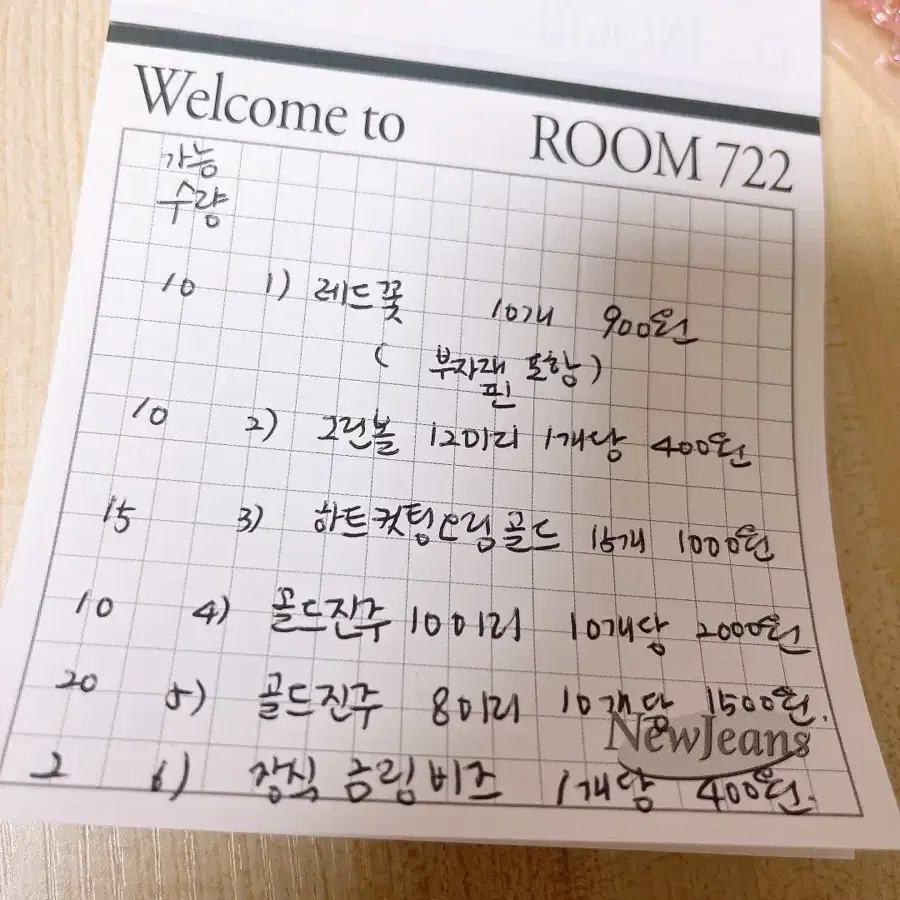 Welcome to ROOM 722
가능
수량
10 1) 레드꽃 10개 900원
( 부자재 포함)
핀
10 2) 그린볼 12미리 1개당 400원
15 3) 하트컷팅오링골드 15개 1000원
10 4) 골드진주 10미리 10개당 2000원
20 5) 골드진주 8미리 10개당 1500원.
NewJeans
2 6) 장식 금링비즈 1개당 400원.